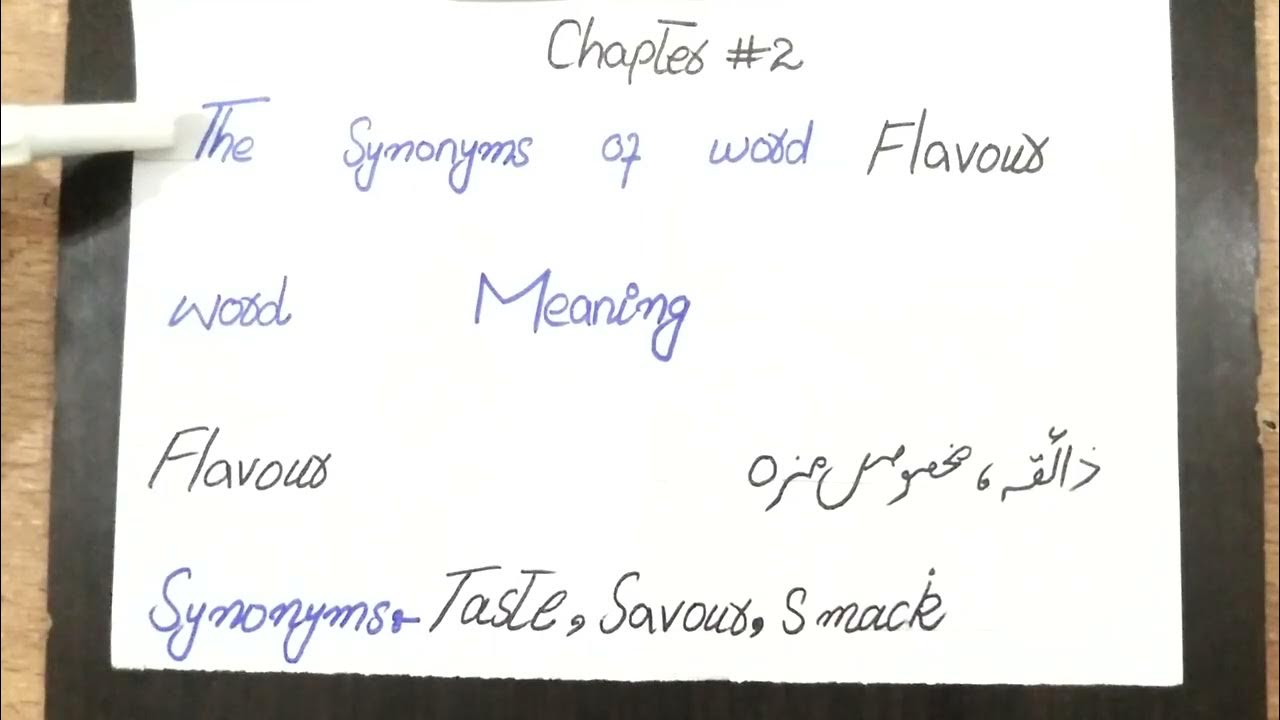 Chapter #2
The Synonyms of word Flavour
word Meaning
Flavour ذائقہ، مخصوص مزہ
Synonyms:- Taste, Savour, Smack